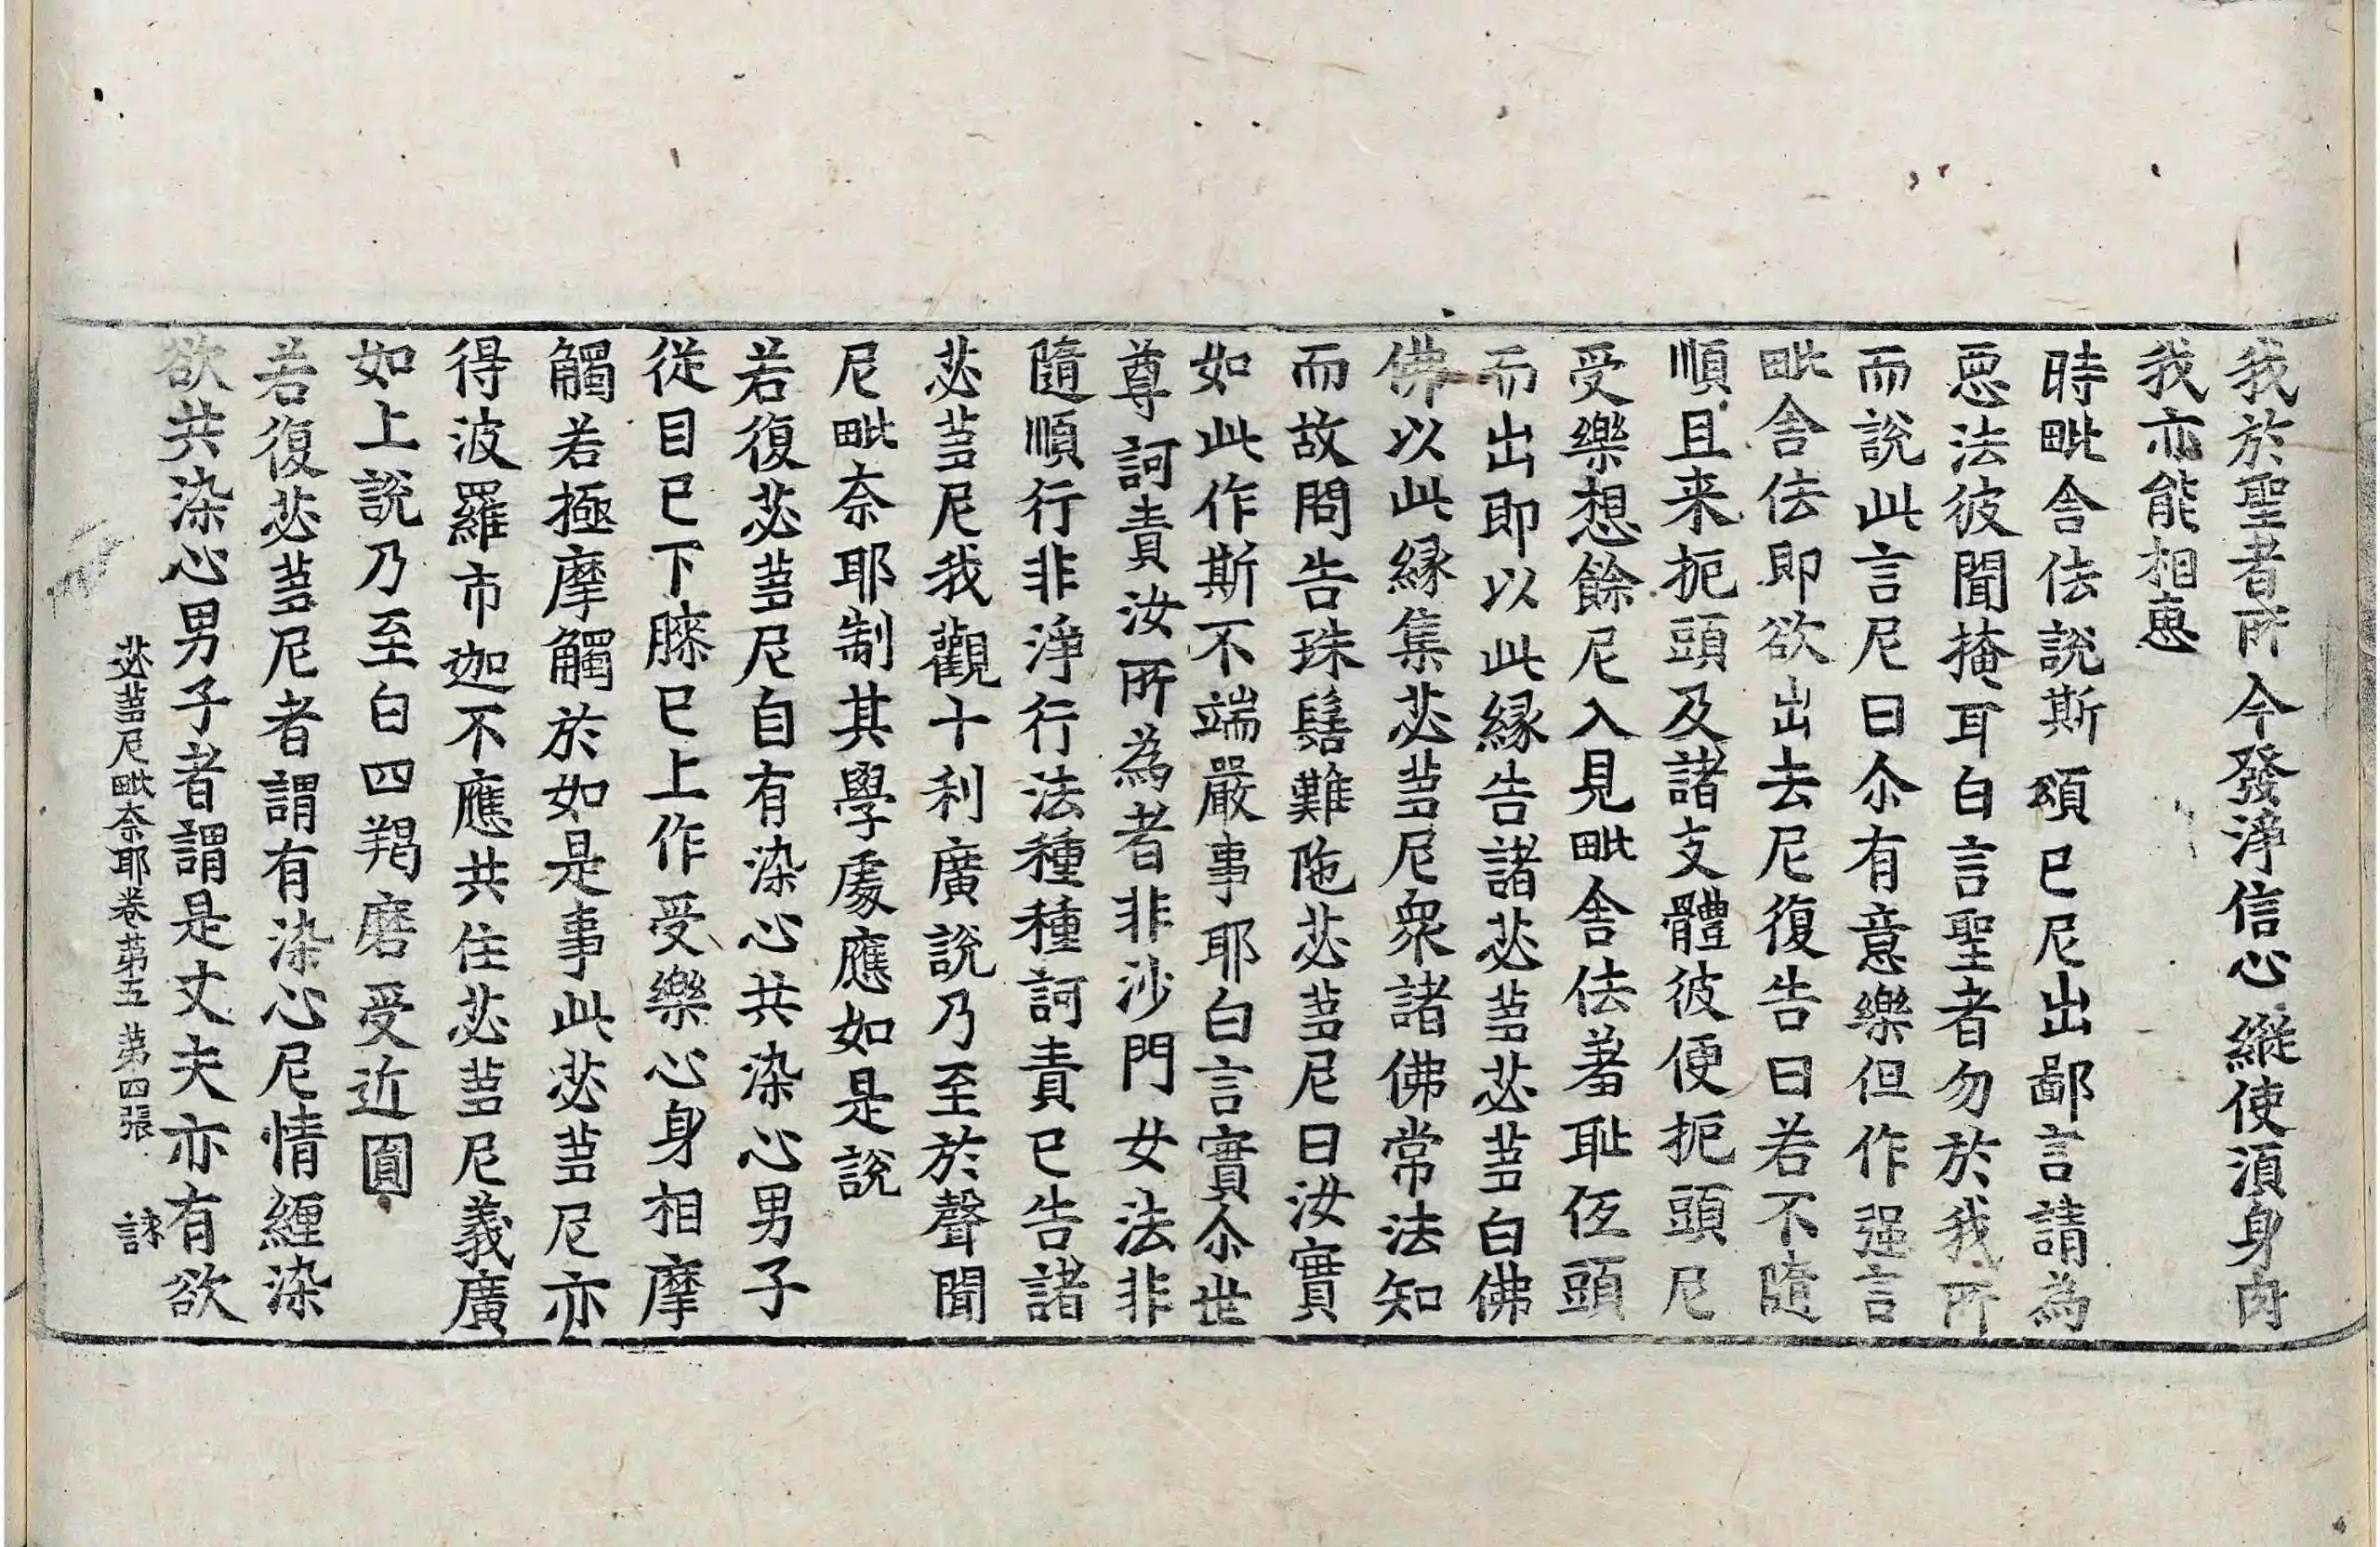 我於聖者所今發淨信心縱使湏身肉
我亦能相惠
時毗舍佉說斯頌已尼出鄙言請為
惡法彼聞掩耳白言聖者勿於我所
而說此言尼曰尒有意樂但作逼言
毗舍佉即欲出去尼復告曰若不隨
順且来扼頭及諸支體彼便扼頭尼
受樂想餘尼入見毗舍佉羞恥伍頭
而出即以此縁告諸苾芻苾芻白佛
佛以此縁集苾芻尼衆諸佛常法知
而故問告珠髻難陁苾芻尼曰汝實
如此作斯不端嚴事耶白言實尒世
尊訶責汝所為者非沙門女法非
隨順行非淨行法種種訶責已告諸
苾芻尼我觀十利廣說乃至於聲聞
尼毗奈耶制其學處應如是說
若復苾芻尼自有染心共染心男子
從目已下膝已上作受樂心身相摩
觸若極摩觸於如是事此苾芻尼亦
得波羅市迦不應共住苾芻尼義廣
如上說乃至白四羯磨受近圓
若復苾芻尼者謂有染心尼情纏染
欲共染心男子者謂是丈夫亦有欲
苾芻尼毗奈耶卷苐五 苐四張 詠